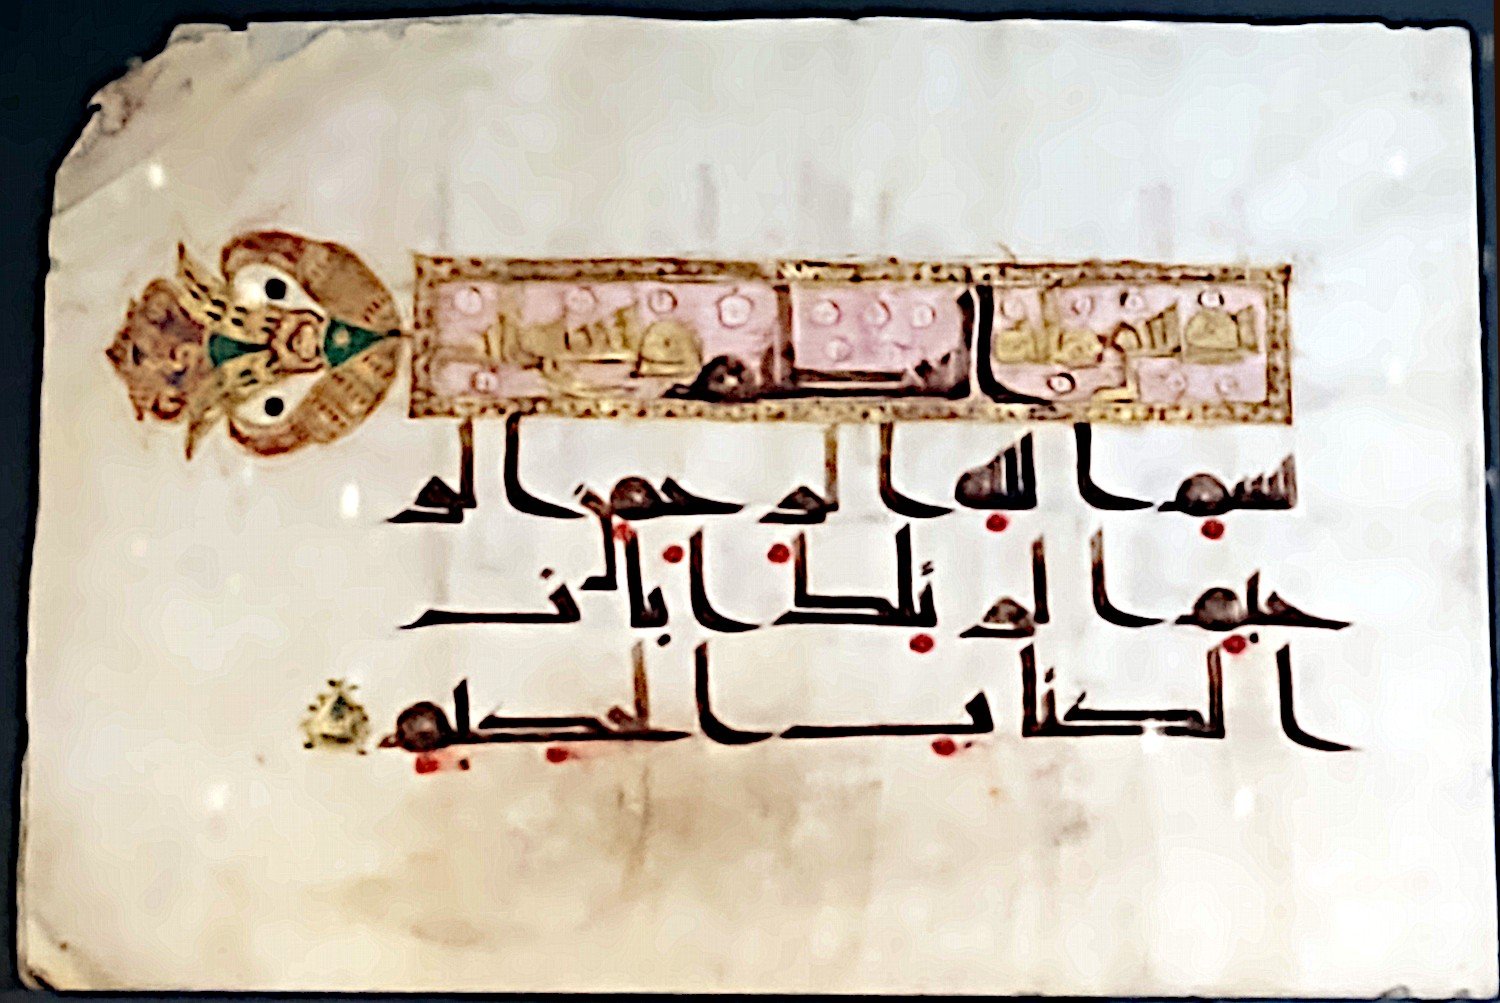 العظيم
بسم الله الرحمن الر
حيم الر تلك ايات
الكتاب الحكيم